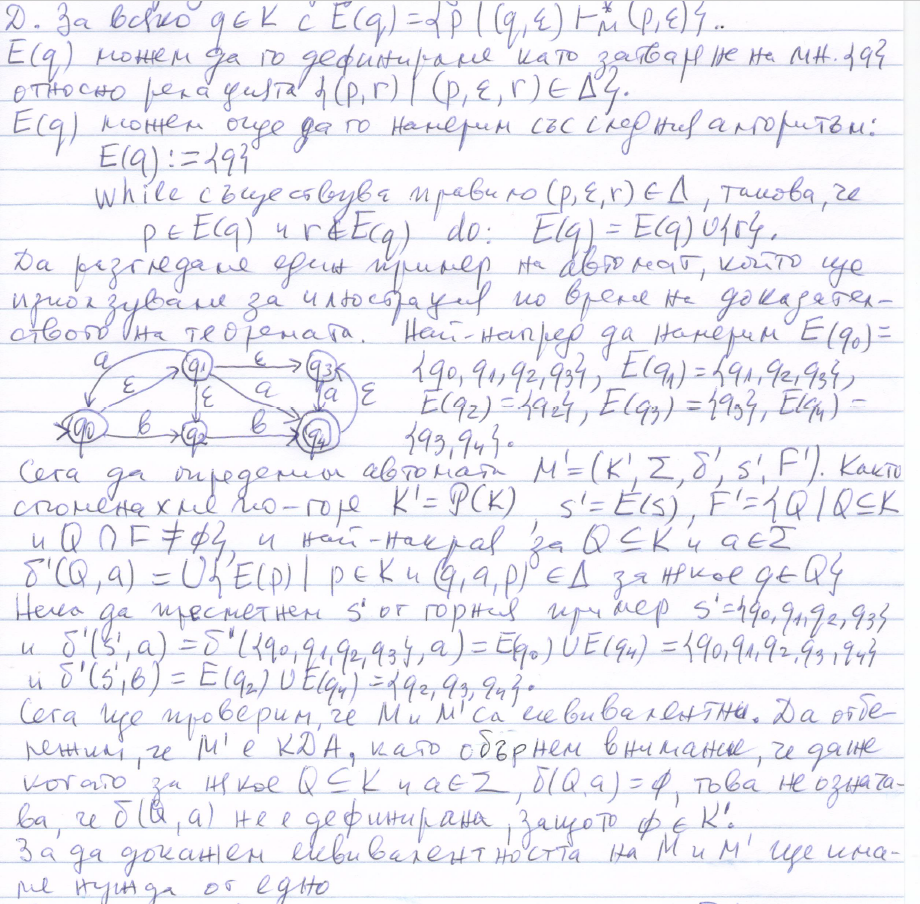 Д. За всяко q∈K с E(q)={p | (q,ε) ⊢*M (p,ε)}..
E(q) можем да го дефинираме като затваряне на мн. {q}
относно релацията {(p,r) | (p,ε,r)∈Δ}.
E(q) можем още да го намерим със следния алгоритъм:
E(q):={q}
while съществува правило (p,ε,r)∈Δ, такова, че
p∈E(q) и r∉E(q) do: E(q)=E(q)∪{r}.
Да разгледаме един пример на автомат, който ще
използуваме за илюстрация по време на доказател-
ството на теоремата. Най-напред да намерим E(q0)=
{q0,q1,q2,q3}, E(q1)={q1,q2,q3},
E(q2)={q2}, E(q3)={q3}, E(q4)=
{q3,q4}.
a ε q1 ε q3
ε a a ε
q0 в q2 в q4
Сега да определим автомата M'=(K',Σ,δ',s',F'). Както
споменахме по-горе K'=P(K), s'=E(s), F'={Q | Q⊆K
и Q∩F≠ϕ}, и най-накрая за Q⊆K и a∈Σ
δ'(Q,a)=∪{E(p) | p∈K и (q,a,p)∈Δ за някое q∈Q}
Нека да пресметнем s' от горния пример s'={q0,q1,q2,q3}
и δ'(s',a)=δ'({q0,q1,q2,q3},a)=E(q0)∪E(q4)={q0,q1,q2,q3,q4}
и δ'(s',в)=E(q2)∪E(q4)={q2,q3,q4}.
Сега ще проверим, че M и M' са еквивалентни. Да отбе-
лежим, че M' е КДА, като обърнем внимание, че даже
когато за някое Q⊆K и a∈Σ, δ(Q,a)=ϕ, това не означа-
ва, че δ(Q,a) не е дефинирана, защото ϕ∈K'.
За да докажем еквивалентността на M и M' ще има-
ме нужда от едно